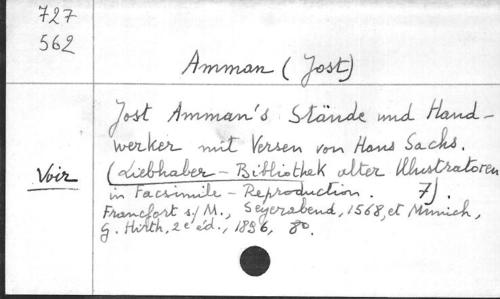 727
562
Amman (Jost)
Jost Amman's Stände und Hand-
werker mit Versen von Hans Sachs.
Voir
(Liebhaber - Bibliothek alter Illustratoren
in Facsimile - Reproduction. 7).
Francfort s/M., Seyerabend, 1568, et Munich,
G. Hirth, 2e éd., 1896, 8o.